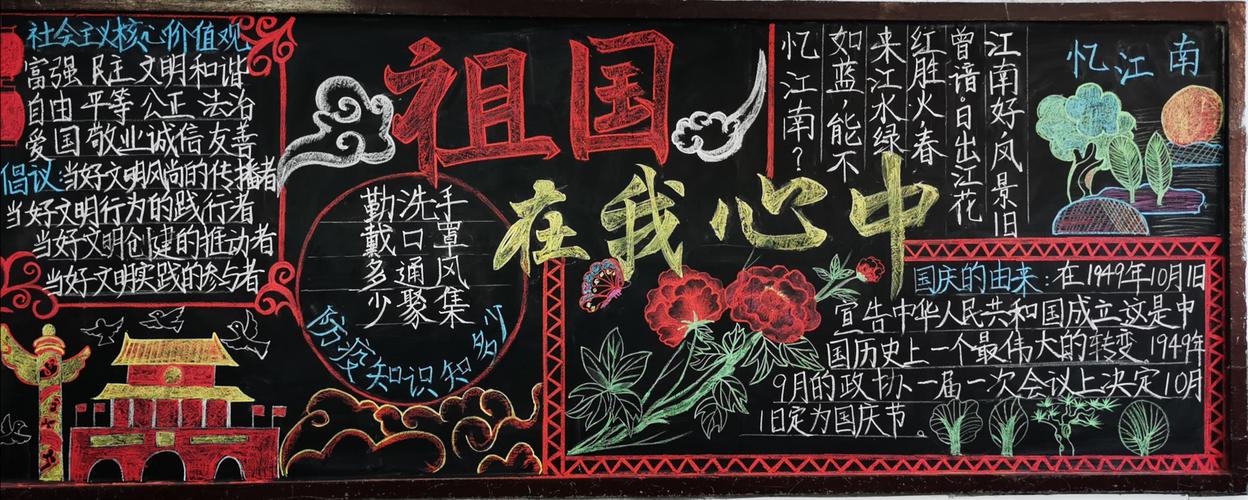 社会主义核心价值观
富强 民主 文明和谐
自由 平等 公正 法治
爱国 敬业诚信友善
倡议:当好文明风尚的传播者
当好文明行为的践行者
当好文明创建的推动者
当好文明实践的参与者
祖国
在我心中
勤洗手
戴口罩
多通风
少聚集
防疫知识知多少
忆江南
江南好风景旧
曾谙。日出江花
红胜火春
来江水绿
如蓝,能不
忆江南?
国庆的由来:在1949年10月1日
宣告中华人民共和国成立这是中
国历史上一个最伟大的转变.1949年
9月的政协一届一次会议上决定10月
1日定为国庆节。